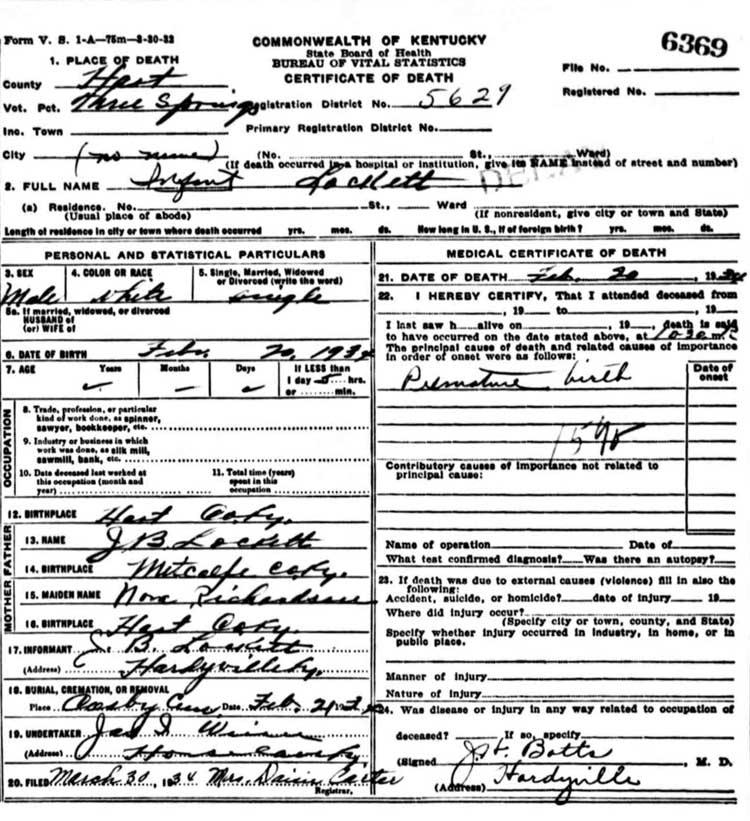 Form V. S. 1-A—75m—3-30-32
COMMONWEALTH OF KENTUCKY
State Board of Health
BUREAU OF VITAL STATISTICS
CERTIFICATE OF DEATH
6369
File No.
Registered No.
1. PLACE OF DEATH
County Hart
Vot. Pct. Three Springs Registration District No. 5629
Inc. Town Primary Registration District No.
City (no name) (No. St., Ward)
(If death occurred in a hospital or institution, give its NAME instead of street and number)
2. FULL NAME Infant Lockett
(a) Residence. No. St., Ward
(Usual place of abode) (If nonresident, give city or town and State)
Length of residence in city or town where death occurred yrs. mos. ds. How long in U. S., if of foreign birth? yrs. mos. ds.
PERSONAL AND STATISTICAL PARTICULARS
3. SEX 4. COLOR OR RACE 5. Single, Married, Widowed
or Divorced (write the word)
Male white single
5a. If married, widowed, or divorced
HUSBAND of
(or) WIFE of
6. DATE OF BIRTH Feb. 20, 1934
7. AGE Years Months Days If LESS than
1 day hrs.
or min.
OCCUPATION
8. Trade, profession, or particular
kind of work done, as spinner,
sawyer, bookkeeper, etc.
9. Industry or business in which
work was done, as silk mill,
sawmill, bank, etc.
10. Date deceased last worked at
this occupation (month and
year)
11. Total time (years)
spent in this
occupation
12. BIRTHPLACE Hart Co Ky.
FATHER
13. NAME J. B. Lockett
14. BIRTHPLACE Metcalfe Co Ky.
MOTHER
15. MAIDEN NAME Nora Richardson
16. BIRTHPLACE Hart Co Ky.
17. INFORMANT J. B. Lockett
(Address) Hardyville Ky.
18. BURIAL, CREMATION, OR REMOVAL
Place Cem Date Feb. 21 1934
19. UNDERTAKER Jas
(Address)
20. FILED March 30, 1934 Mrs. Daisie Carter
Registrar.
MEDICAL CERTIFICATE OF DEATH
21. DATE OF DEATH Feb. 20, 1934
22. I HEREBY CERTIFY, That I attended deceased from
, 19 to , 19
I last saw h alive on , 19 , death is said
to have occurred on the date stated above, at
The principal cause of death and related causes of importance
in order of onset were as follows:
Date of
onset
Premature birth
159
Contributory causes of importance not related to
principal cause:
Name of operation Date of
What test confirmed diagnosis? Was there an autopsy?
23. If death was due to external causes (violence) fill in also the
following:
Accident, suicide, or homicide? date of injury 19
Where did injury occur?
(Specify city or town, county, and State)
Specify whether injury occurred in industry, in home, or in
public place.
Manner of injury
Nature of injury
24. Was disease or injury in any way related to occupation of
deceased? If so, specify
(Signed J. H. Botts, M. D.
(Address) Hardyville